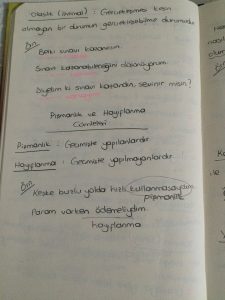 Olasılık (ihtimal) : Gerçekleşmesi kesin
olmayan bir durumun gerçekleşebilme durumudur.
Örn
Belki sınavı kazanırım.
Sınavı kazanabileceğini düşünüyorum.
Diyelim ki sınavı kazandın, sevinir misin?
Pişmanlık ve Hayıflanma
Cümleleri
Pişmanlık : Geçmişte yapılanlardır
Hayıflanma : Geçmişte yapılmayanlardır.
Örn
Keşke buzlu yolda hızlı kullanmasaydım
pişmanlık
Param varken ödemeliydim.
hayıflanma